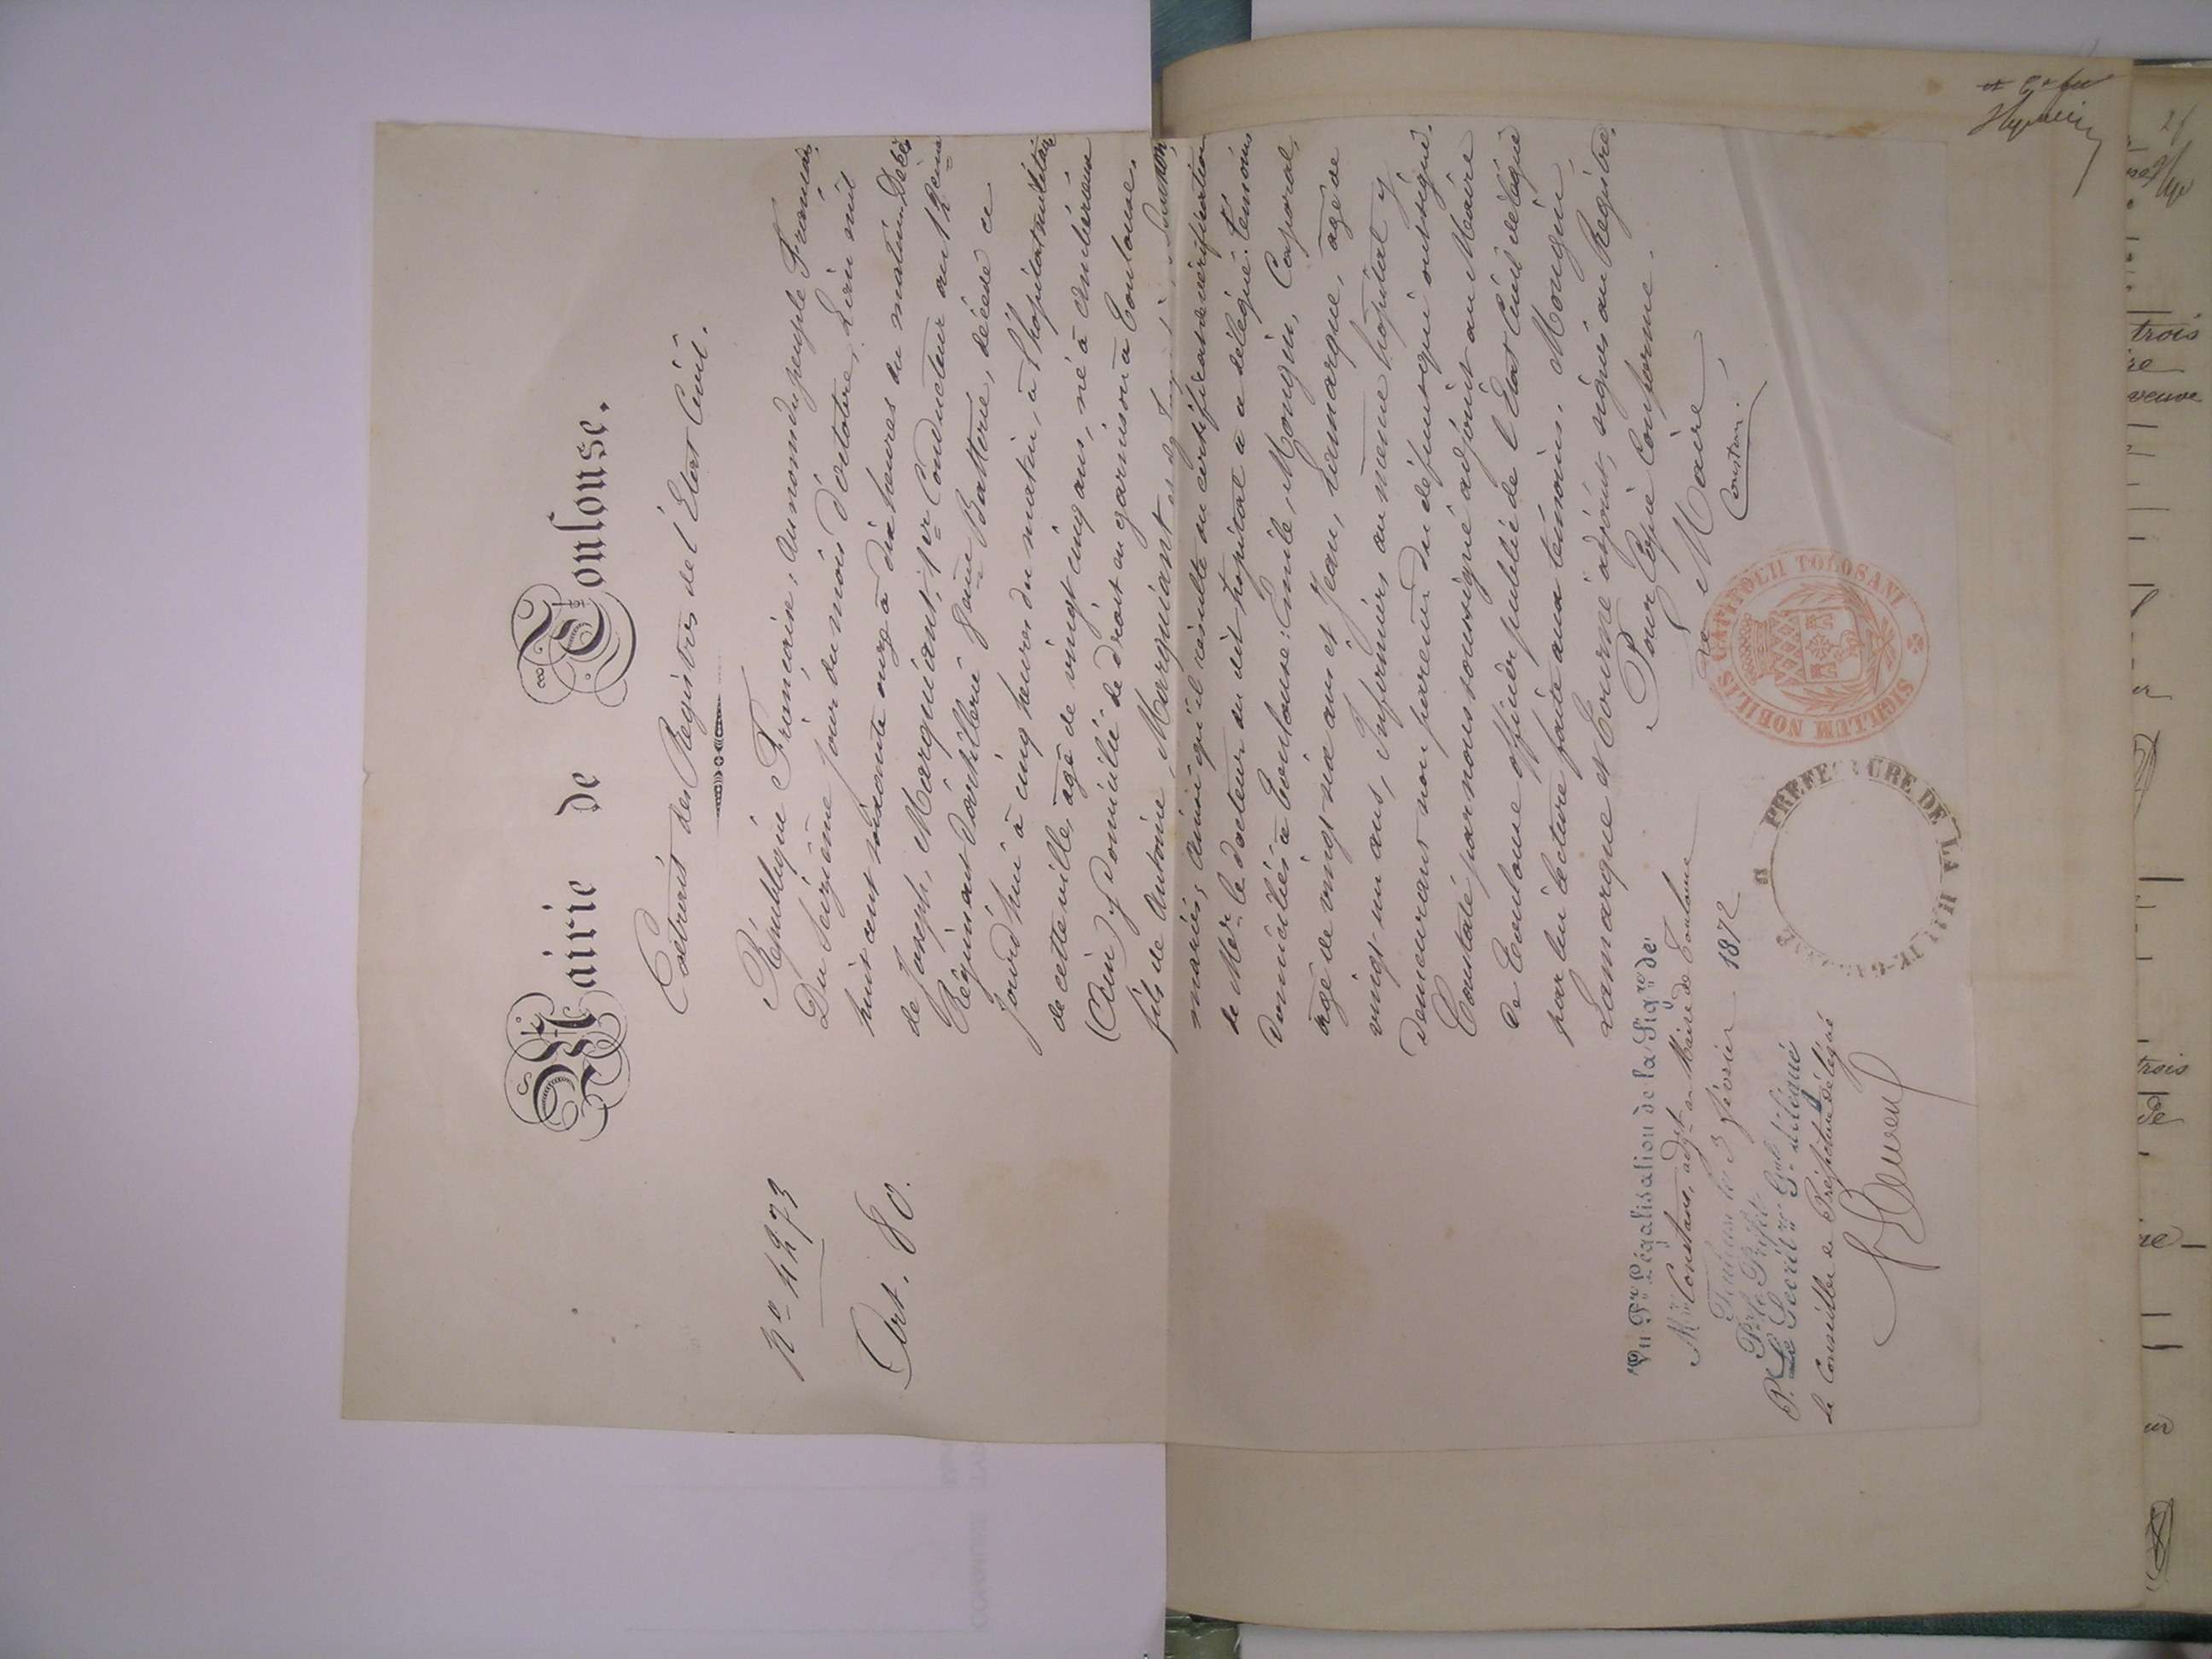 Mairie de Toulouse.
Extrait des Registres de l'État Civil.
N° 4273
Art. 80.
République Française, Au nom du peuple Français,
Du Seizième jour du mois d'octobre, L'an mil
huit cent soixante onze à dix heures du matin, Décès
de Joseph, Marquiant, 1er Conducteur au 12ème
Régiment d'artillerie 8ème Batterie, décédé ce
jourd'hui à cinq heures du matin, à l'hopital militaire
de cette ville, agé de vingt cinq ans, né à Ambérieux
(Ain) y domicilié de droit en garnison à Toulouse.
fils de Antoine, Marquiant et de
mariés, Ainsi qu'il résulte du certificat de vérification
de Mr. le docteur du dit hopital à ce délégué. témoins
domiciliés à Toulouse: Emile, Mongin, Caporal,
agé de vingt six ans et Jean, Lamarque, agé de
vingt un ans, Infirmiers au même hopital y
demeurant non parents du défunt qui ont signé.
Constaté par nous soussigné adjoint au Maire
de Toulouse officier public de l'Etat Civil délégué
par lui lecture faite aux témoins. Mongin,
Lamarque et Tourné adjoint, signés au Registre.
Pour Copie Conforme.
Le Maire,
SIGILLUM NOBILIS CAPITOLII TOLOSANI
Vu Pr Légalisation de la Sigre de
Mr Constans, adjt au Maire de Toulouse
Toulouse le 3 février 1872
Pr le Préfet
P. Le Secrétre Gal délégué
Le Conseiller de Préfecture délégué
PREFECTURE DE LA HAUTE-GARONNE
trois
veuve
trois
de